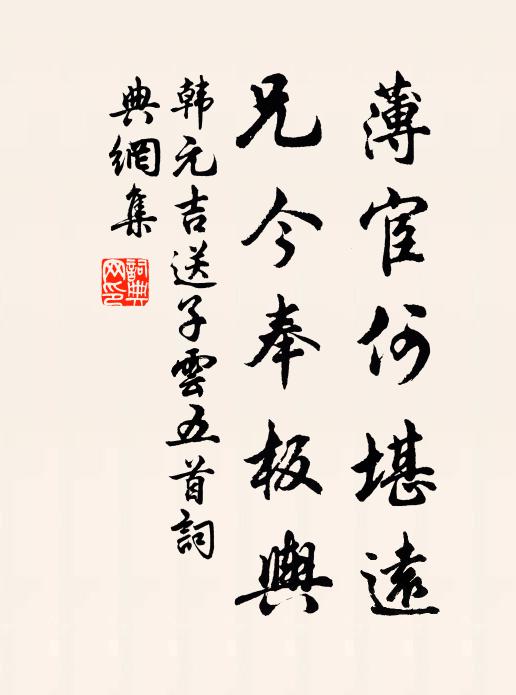 薄宦何堪遠
兄今奉板輿
韩元吉送子雲五首詞
典網集
詞典網印